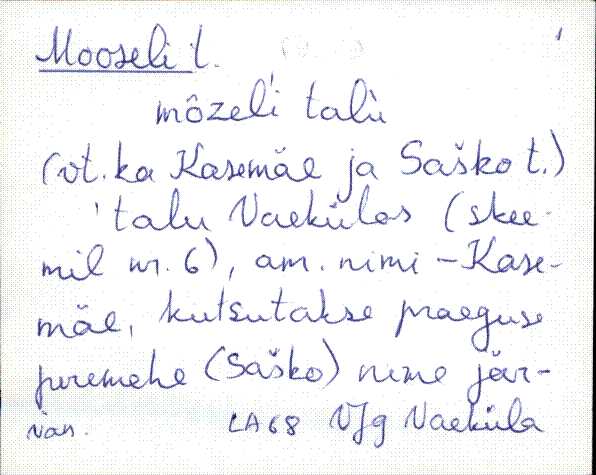 Mooseli t.
môzeli talu
(vt. ka Kasemäe ja Saško t.)
talu Vaekülas (skee-
mil nr. 6), am. nimi – Kase-
mäe, kutsutakse praeguse
peremehe (Saško) nime jär-
van. LA68 VJg Vaeküla